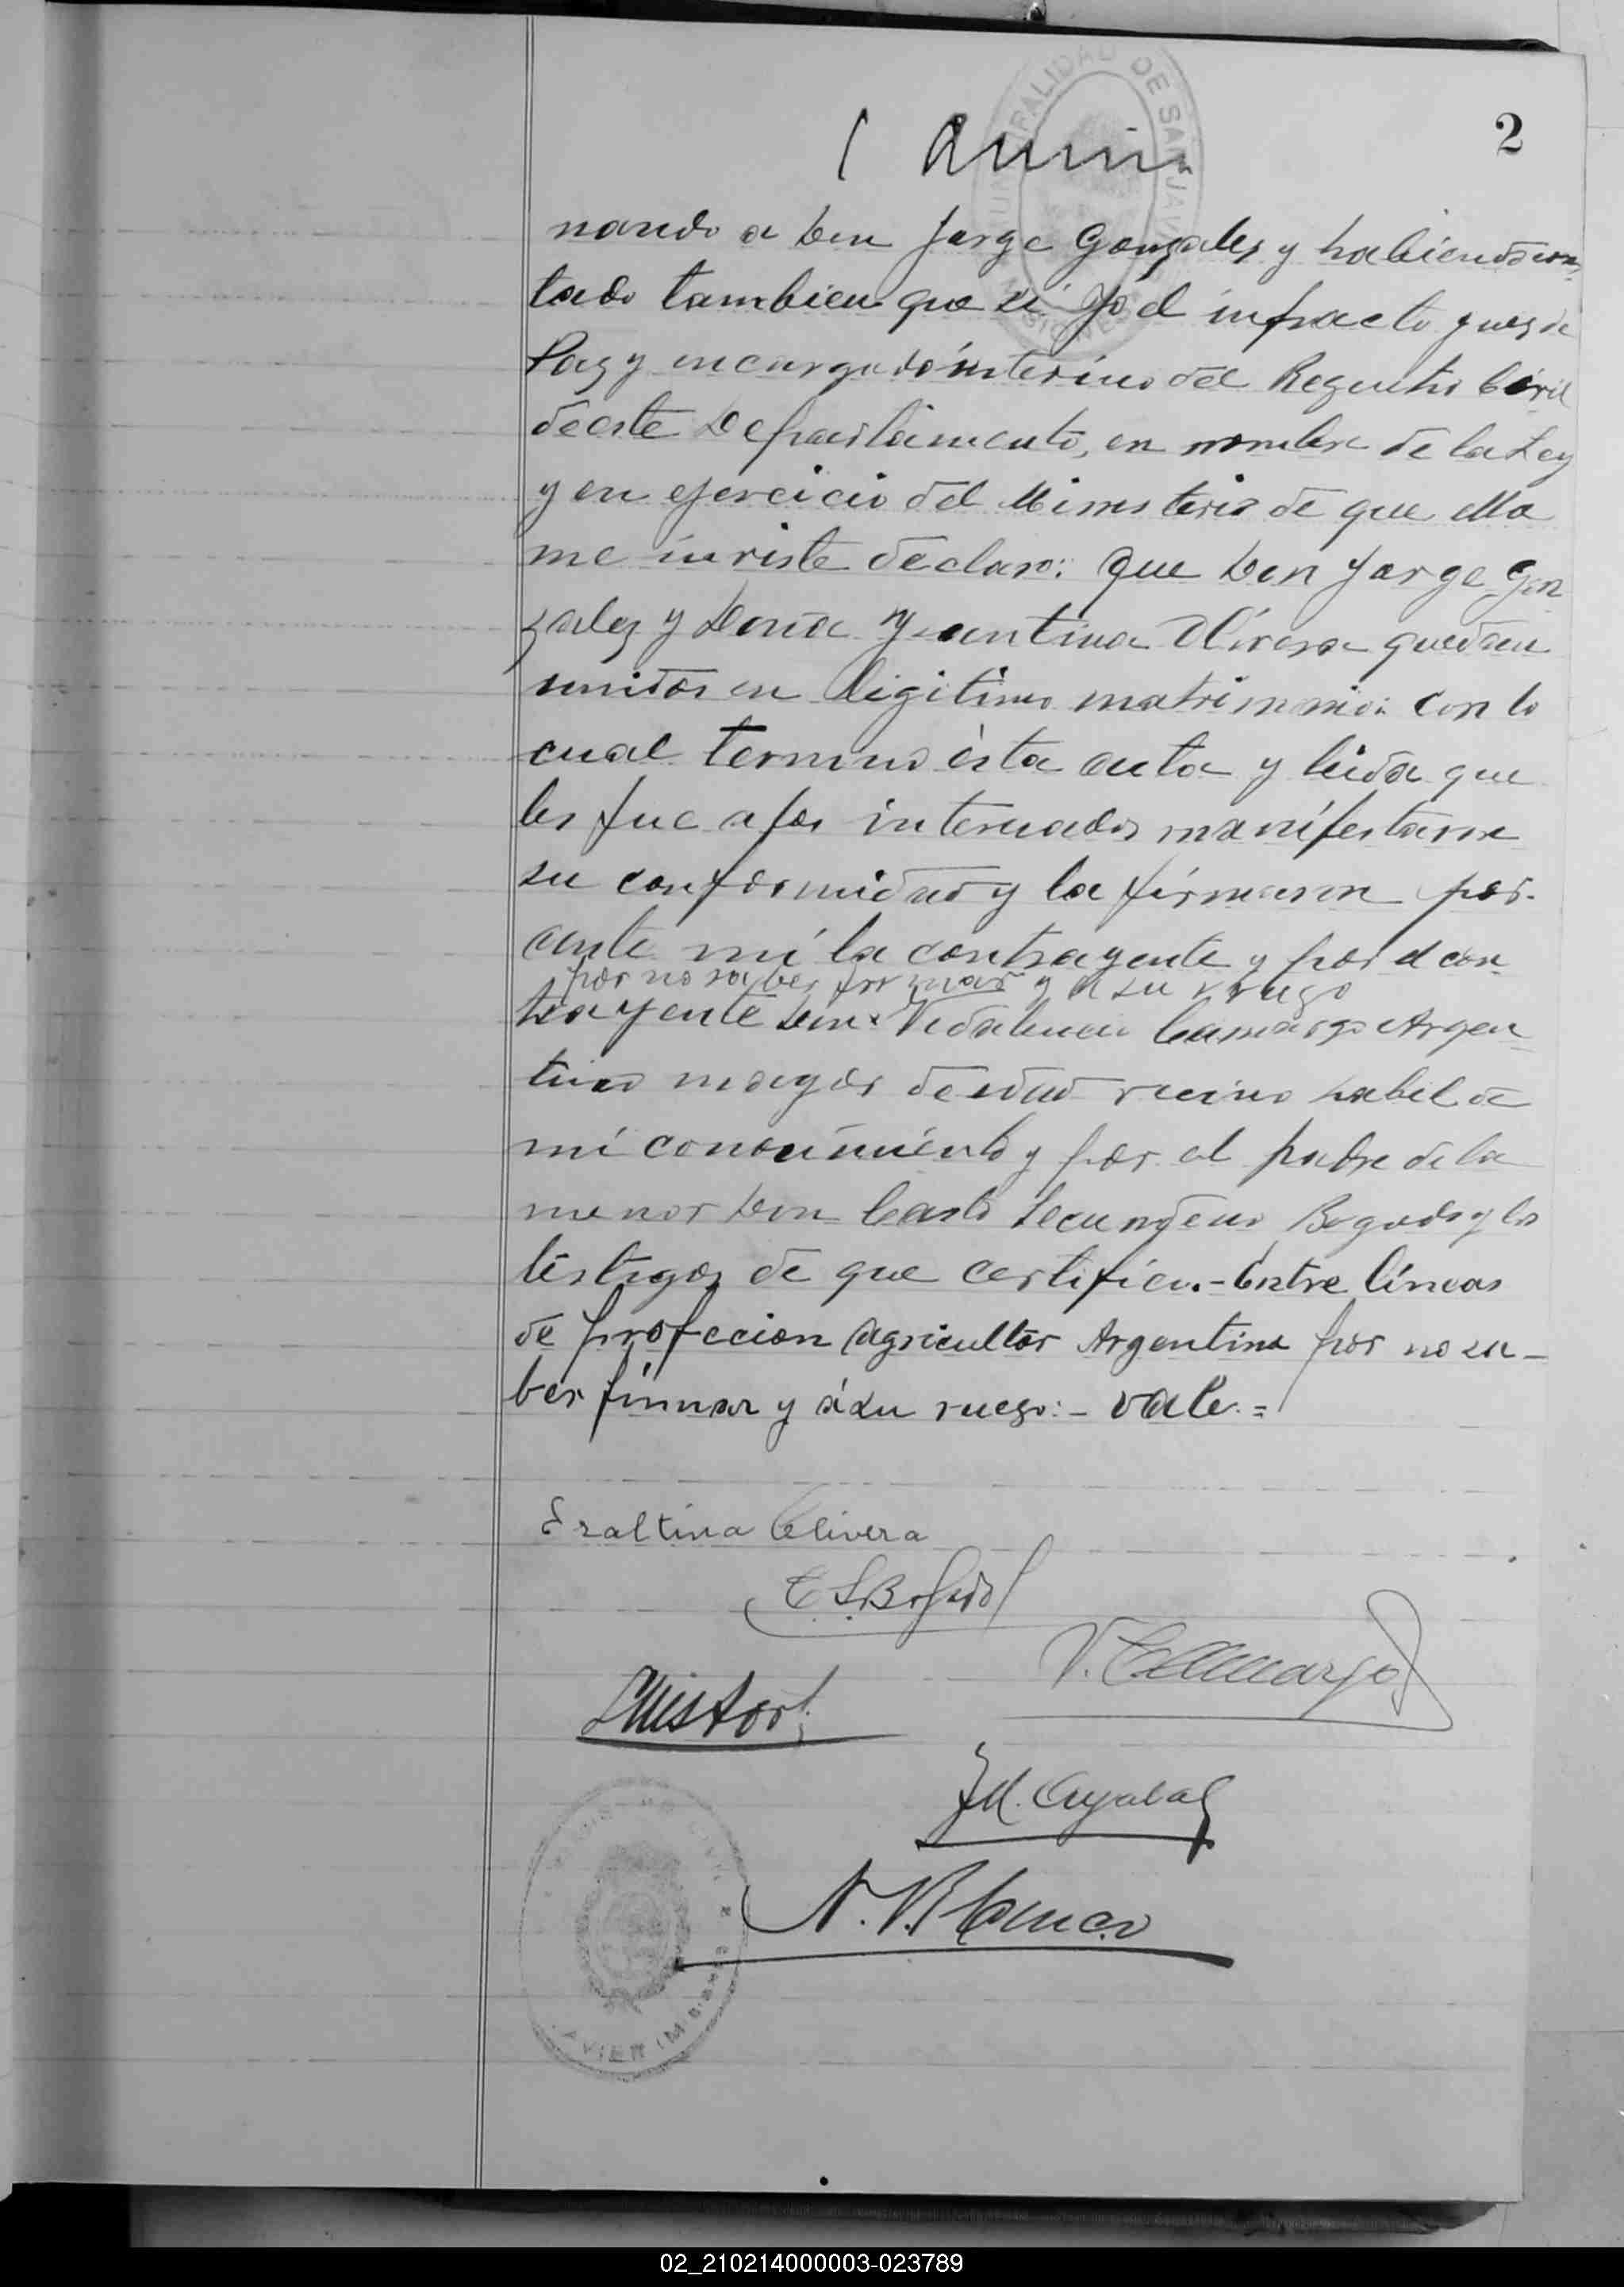 2
MUNICIPALIDAD DE SAN JAVIER
MISIONES
nando a Don Jorge Gonzalez y habiendo con
tado tambien que si Yó el infracto Juez de
Paz y encargado interino del Registro Civil
de este Departamento, en nombre de la Ley
y en ejercicio del Ministerio de que ella
me inviste declaro: Que Don Jorge Gon
zalez y Doña Olivera quedan
unidos en ligitimo matrimonio: con lo
cual termino ésta acta y leida que
les fue a los interesados manifestaron
su conformidad y la firmaron por
ante mi la contrayente y por el con
por no saber firmar y a su ruego
trayente Don Vidalencio Camargo Argen
tino mayor de edad vecino habil de
mi conocimiento y por el padre de la
menor Don Casto Secundino Bogado y los
testigos de que certifico.- Entre líneas
de profeccion agricultor Argentina por no sa-
ber firmar y á su ruego:- vale.=
Eraltina Olivera
C S. Bogado
V. Camargo
J M. Ayala
N. Blanco
CIVIL
AVIER (MISIONES
02_210214000003-023789